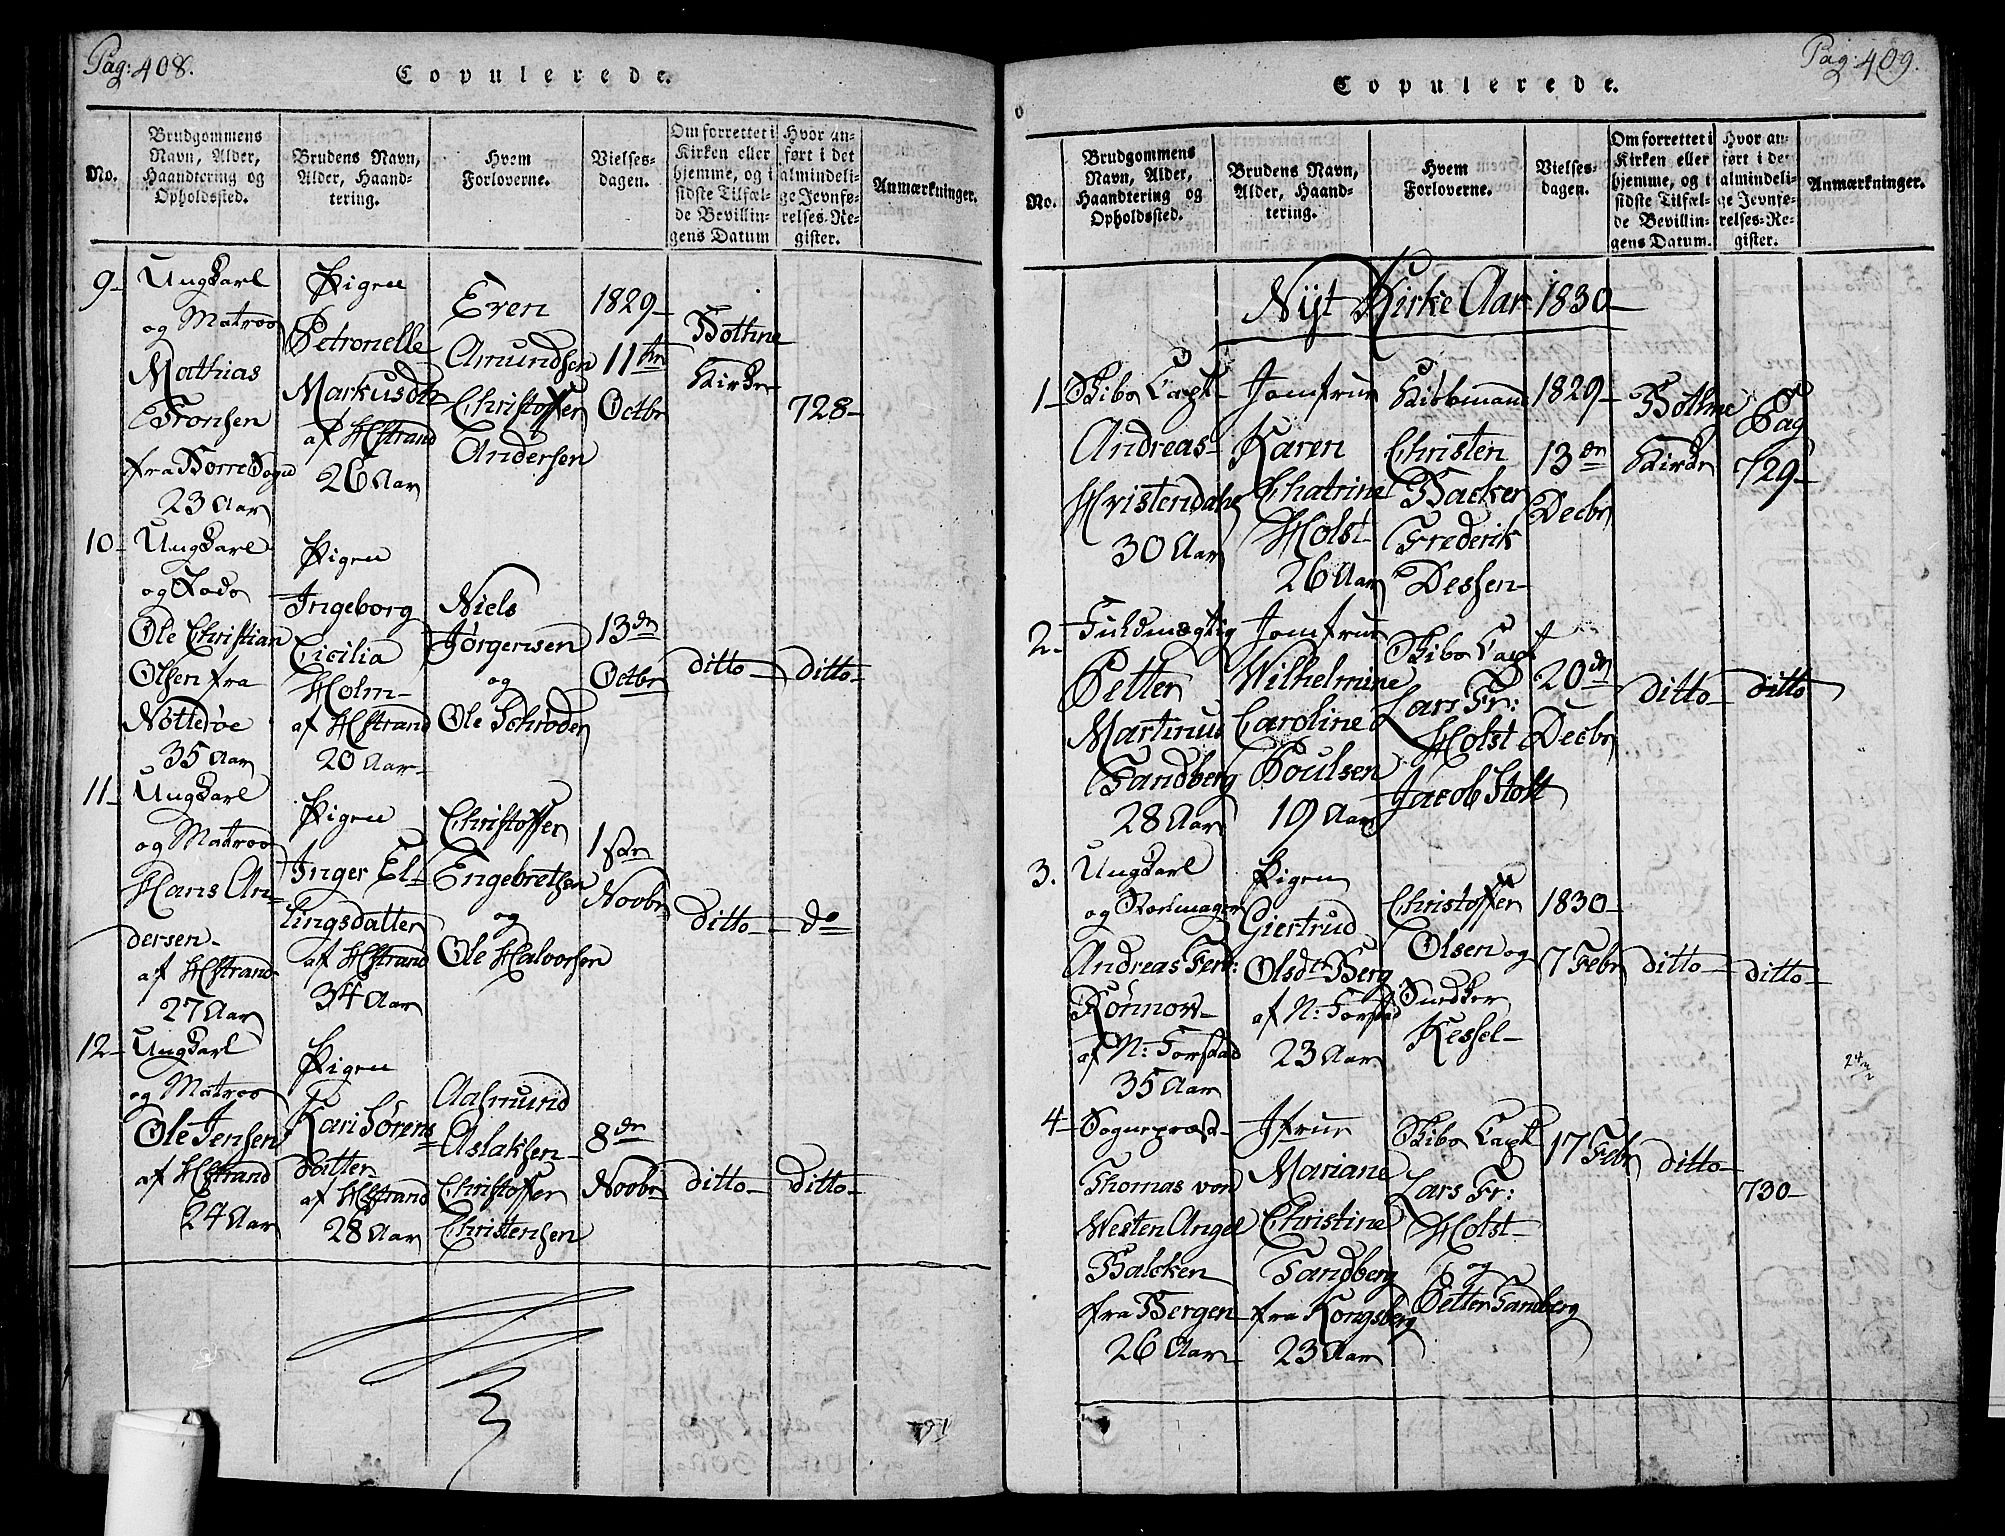 Pag: 408.
Copulerede.
No.
Brudgommens
Navn, Alder,
Haandtering og
Opholdssted.
Brudens Navn,
Alder, Haand-
tering.
Hvem
Forloverne.
Vielses-
dagen.
Om forrettet i
Kirken eller
hjemme, og i
sidste Tilfæl-
de Bevillin-
gens Datum
Hvor an-
ført i det
almindeli-
ge Jevnfø-
relses-Re-
gister.
Anmærkninger.
9-
Ungkarl
og Matros
Mathias
Tronsen
fra Borre Sogn
23 Aar
Pigen
Petronelle
Markusdtr
af HStrand
26 Aar
Even
Amundsen
Christoffer
Andersen
1829-
11te
Octbr
Bottne
Kirke
728-
10-
Ungkarl
og
Ole Christian
Olsen fra
Nötteröe
35 Aar
Pigen
Ingeborg
Cicilia
Holm-
af HStrand
20 Aar-
Niels
Jörgensen
og
Ole Schröder
13de
Octbr
ditto-
ditto-
11-
Ungkarl
og Matros
Hans An-
dersen-
af HStrand
27 Aar
Pigen
Inger El-
lingsdatter
af HStrand
34 Aar
Christoffer
Engebretsen
og
Ole Halvorsen
1ste
Novbr
ditto-
do
12-
Ungkarl
og Matros
Ole Jensen
af HStrand
24 Aar
Pigen
Kari Sörens
Datter
af HStrand
28 Aar
Aasmund
Aslaksen-
Christoffer
Christensen
8de
Novbr
ditto-
ditto-
Pag: 409.
Copulerede.
No.
Brudgommens
Navn, Alder,
Haandtering og
Opholdssted.
Brudens Navn,
Alder, Haand-
tering.
Hvem
Forloverne.
Vielses-
dagen.
Om forrettet i
Kirken eller
hjemme, og i
sidste Tilfæl-
de Bevillin-
gens Datum.
Hvor an-
ført i det
almindeli-
ge Jevnfø-
relses-Re-
gister.
Anmærkninger.
Nyt Kirke Aar 1830-
1-
Skibs Capt-
Andreas-
Hristendahl
30 Aar
Jomfrue
Karen
Chatrine
Holst-
26 Aar
Kiöbmand
Christen
Backer
Frederik
Dessen-
1829-
13de
Decbr
Bottne
Kirke
Pag
729-
2-
Fuldmægtig
Petter
Martinus
Sandberg
28 Aar
Jomfrue
Wilhelmine
Caroline
Poulsen
19 Aar
Skibs Capt
Lars Fr:
Holst
Jacob Stolt
20de
Decbr
ditto-
ditto
3.
Ungkarl
og Skomager
Andreas Ferd:
Rönnov-
af N: Forstad
35 Aar
Pigen
Giertrud
Olsdt Berg
af N: Forstad
23 Aar
Christoffer
Olsen og
Snedker
Kessel-
1830-
7 Febr
ditto-
ditto-
4-
Sognepræst-
Thomas von
Westen Angel
Balcken
fra Bergen
26 Aar-
Jfrue
Mariane
Christine
Sandberg
fra Kongsberg
23 Aar
Skibs Capt
Lars Fr:
Holst-
og
Petter Sandberg
17 Febr
ditto-
730-